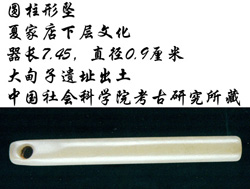 圆柱形坠
夏家店下层文化
器长7.45，直径0.9厘米
大甸子遗址出土
中国社会科学院考古研究所藏